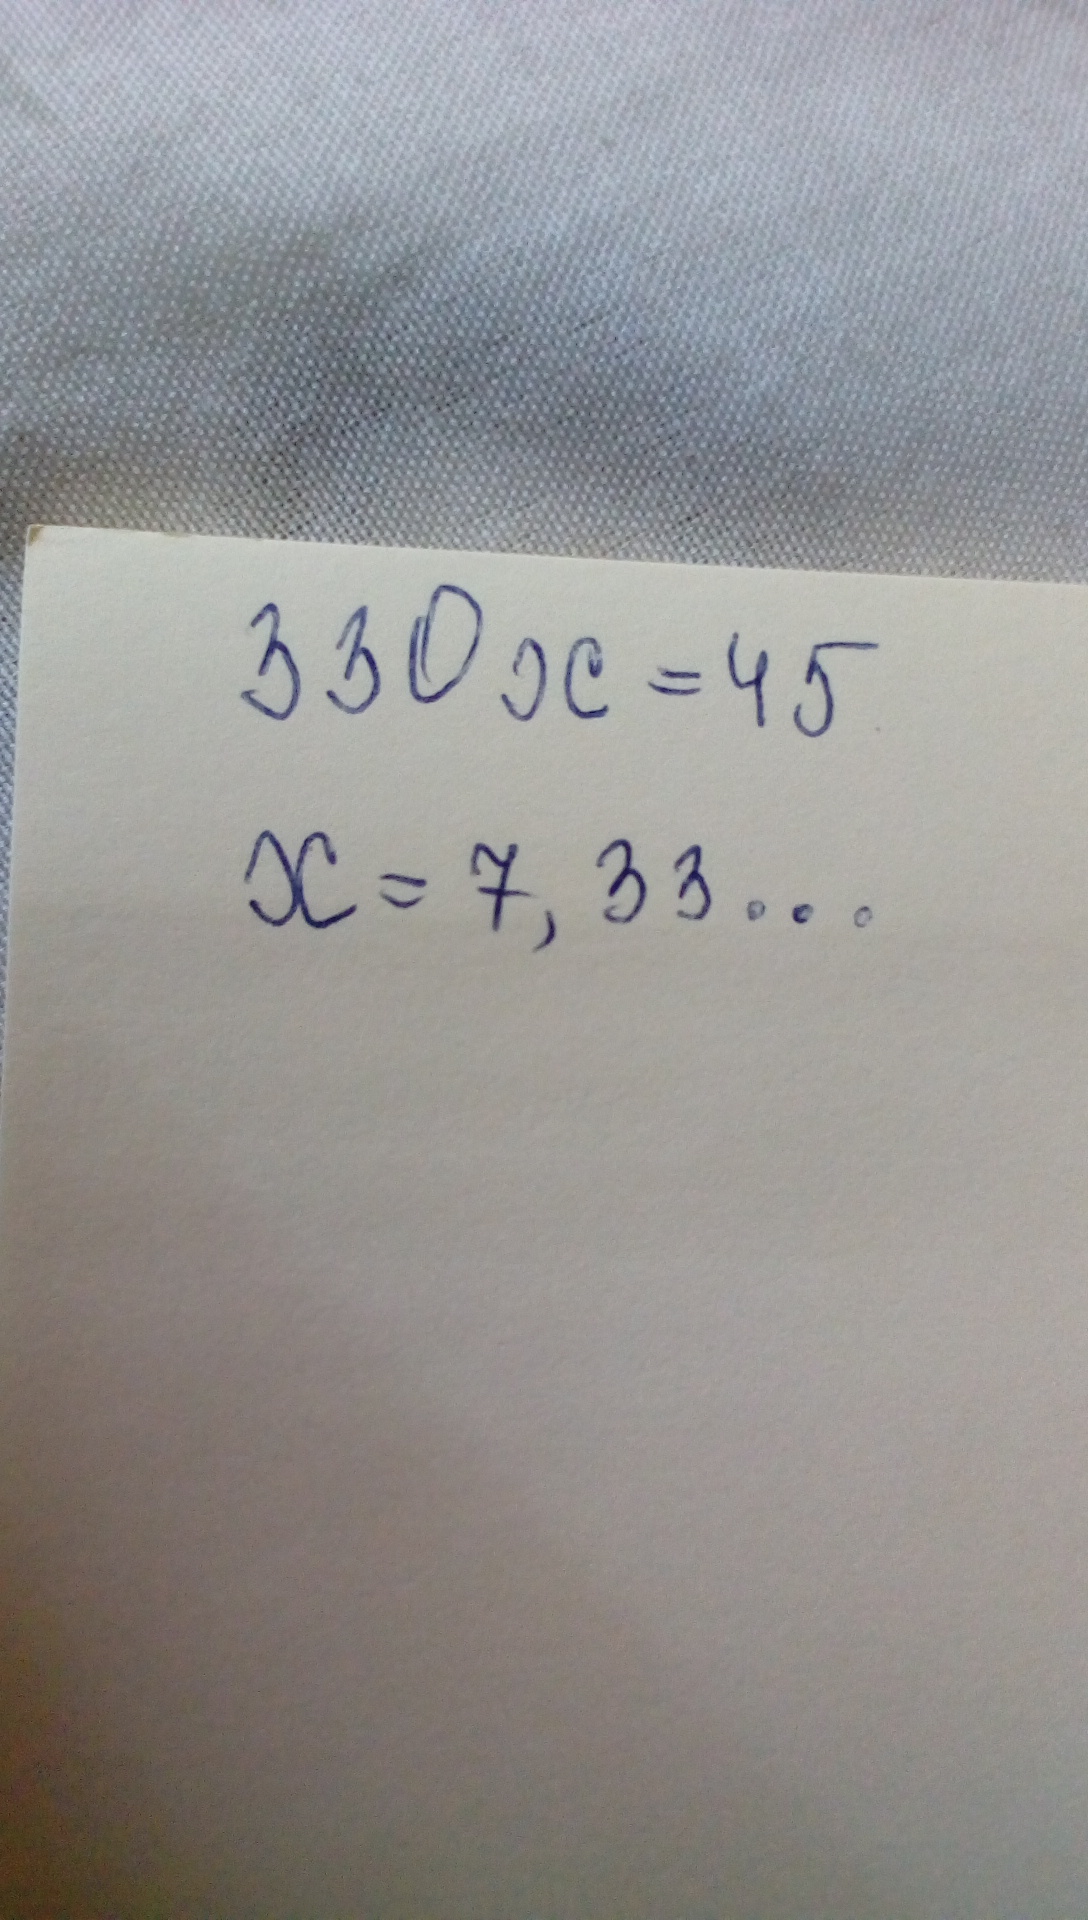 330x=45
x=7,33...